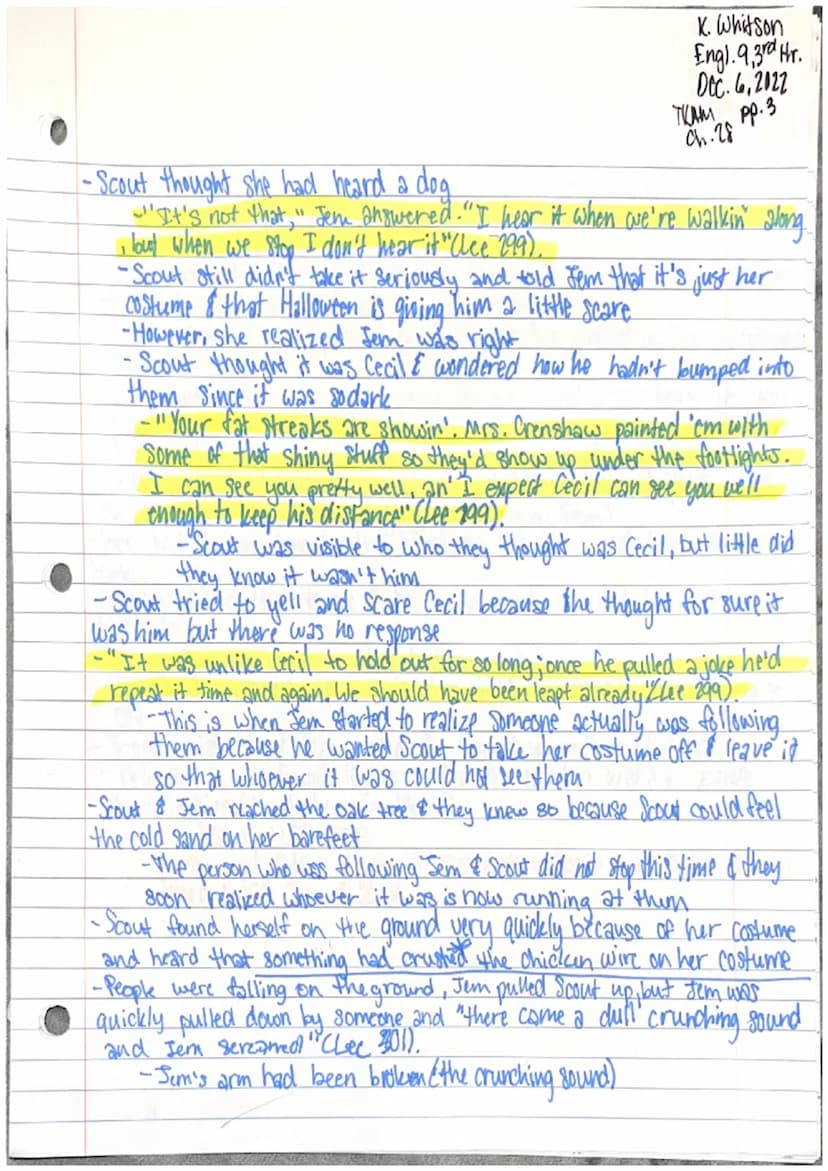 K. Whitson
Engl. 9, 3rd Hr.
Dec. 6, 2022
TKAM pp. 3
Ch. 28
- Scout thought she had heard a dog
- "It's not that," Jem answered. "I hear it when we're walkin' along
, but when we stop I don't hear it" (Lee 299).
- Scout still didn't take it seriously and told Jem that it's just her
costume & that Halloween is giving him a little scare
- However, she realized Jem was right
- Scout thought it was Cecil & wondered how he hadn't bumped into
them since it was so dark
- "Your fat streaks are showin'. Mrs. Crenshaw painted 'em with
some of that shiny stuff so they'd show up under the footlights.
I can see you pretty well, an' I expect Cecil can see you well
enough to keep his distance" (Lee 299).
- Scout was visible to who they thought was Cecil, but little did
they know it wasn't him
- Scout tried to yell and scare Cecil because she thought for sure it
was him but there was no response
- "It was unlike Cecil to hold out for so long; once he pulled a joke he'd
repeat it time and again. We should have been leapt already" (Lee 299).
- This is when Jem started to realize someone actually was following
them because he wanted Scout to take her costume off & leave it
so that whoever it was could not see them
- Scout & Jem reached the oak tree & they knew so because Scout could feel
the cold sand on her barefeet
- The person who was following Jem & Scout did not stop this time & they
soon realized whoever it was is now running at them
- Scout found herself on the ground very quickly because of her costume
and heard that something had crushed the chicken wire on her costume
- People were falling on the ground, Jem pulled Scout up, but Jem was
quickly pulled down by someone and "there came a dull crunching sound
and Jem screamed" (Lee 301).
- Jem's arm had been broken (the crunching sound)